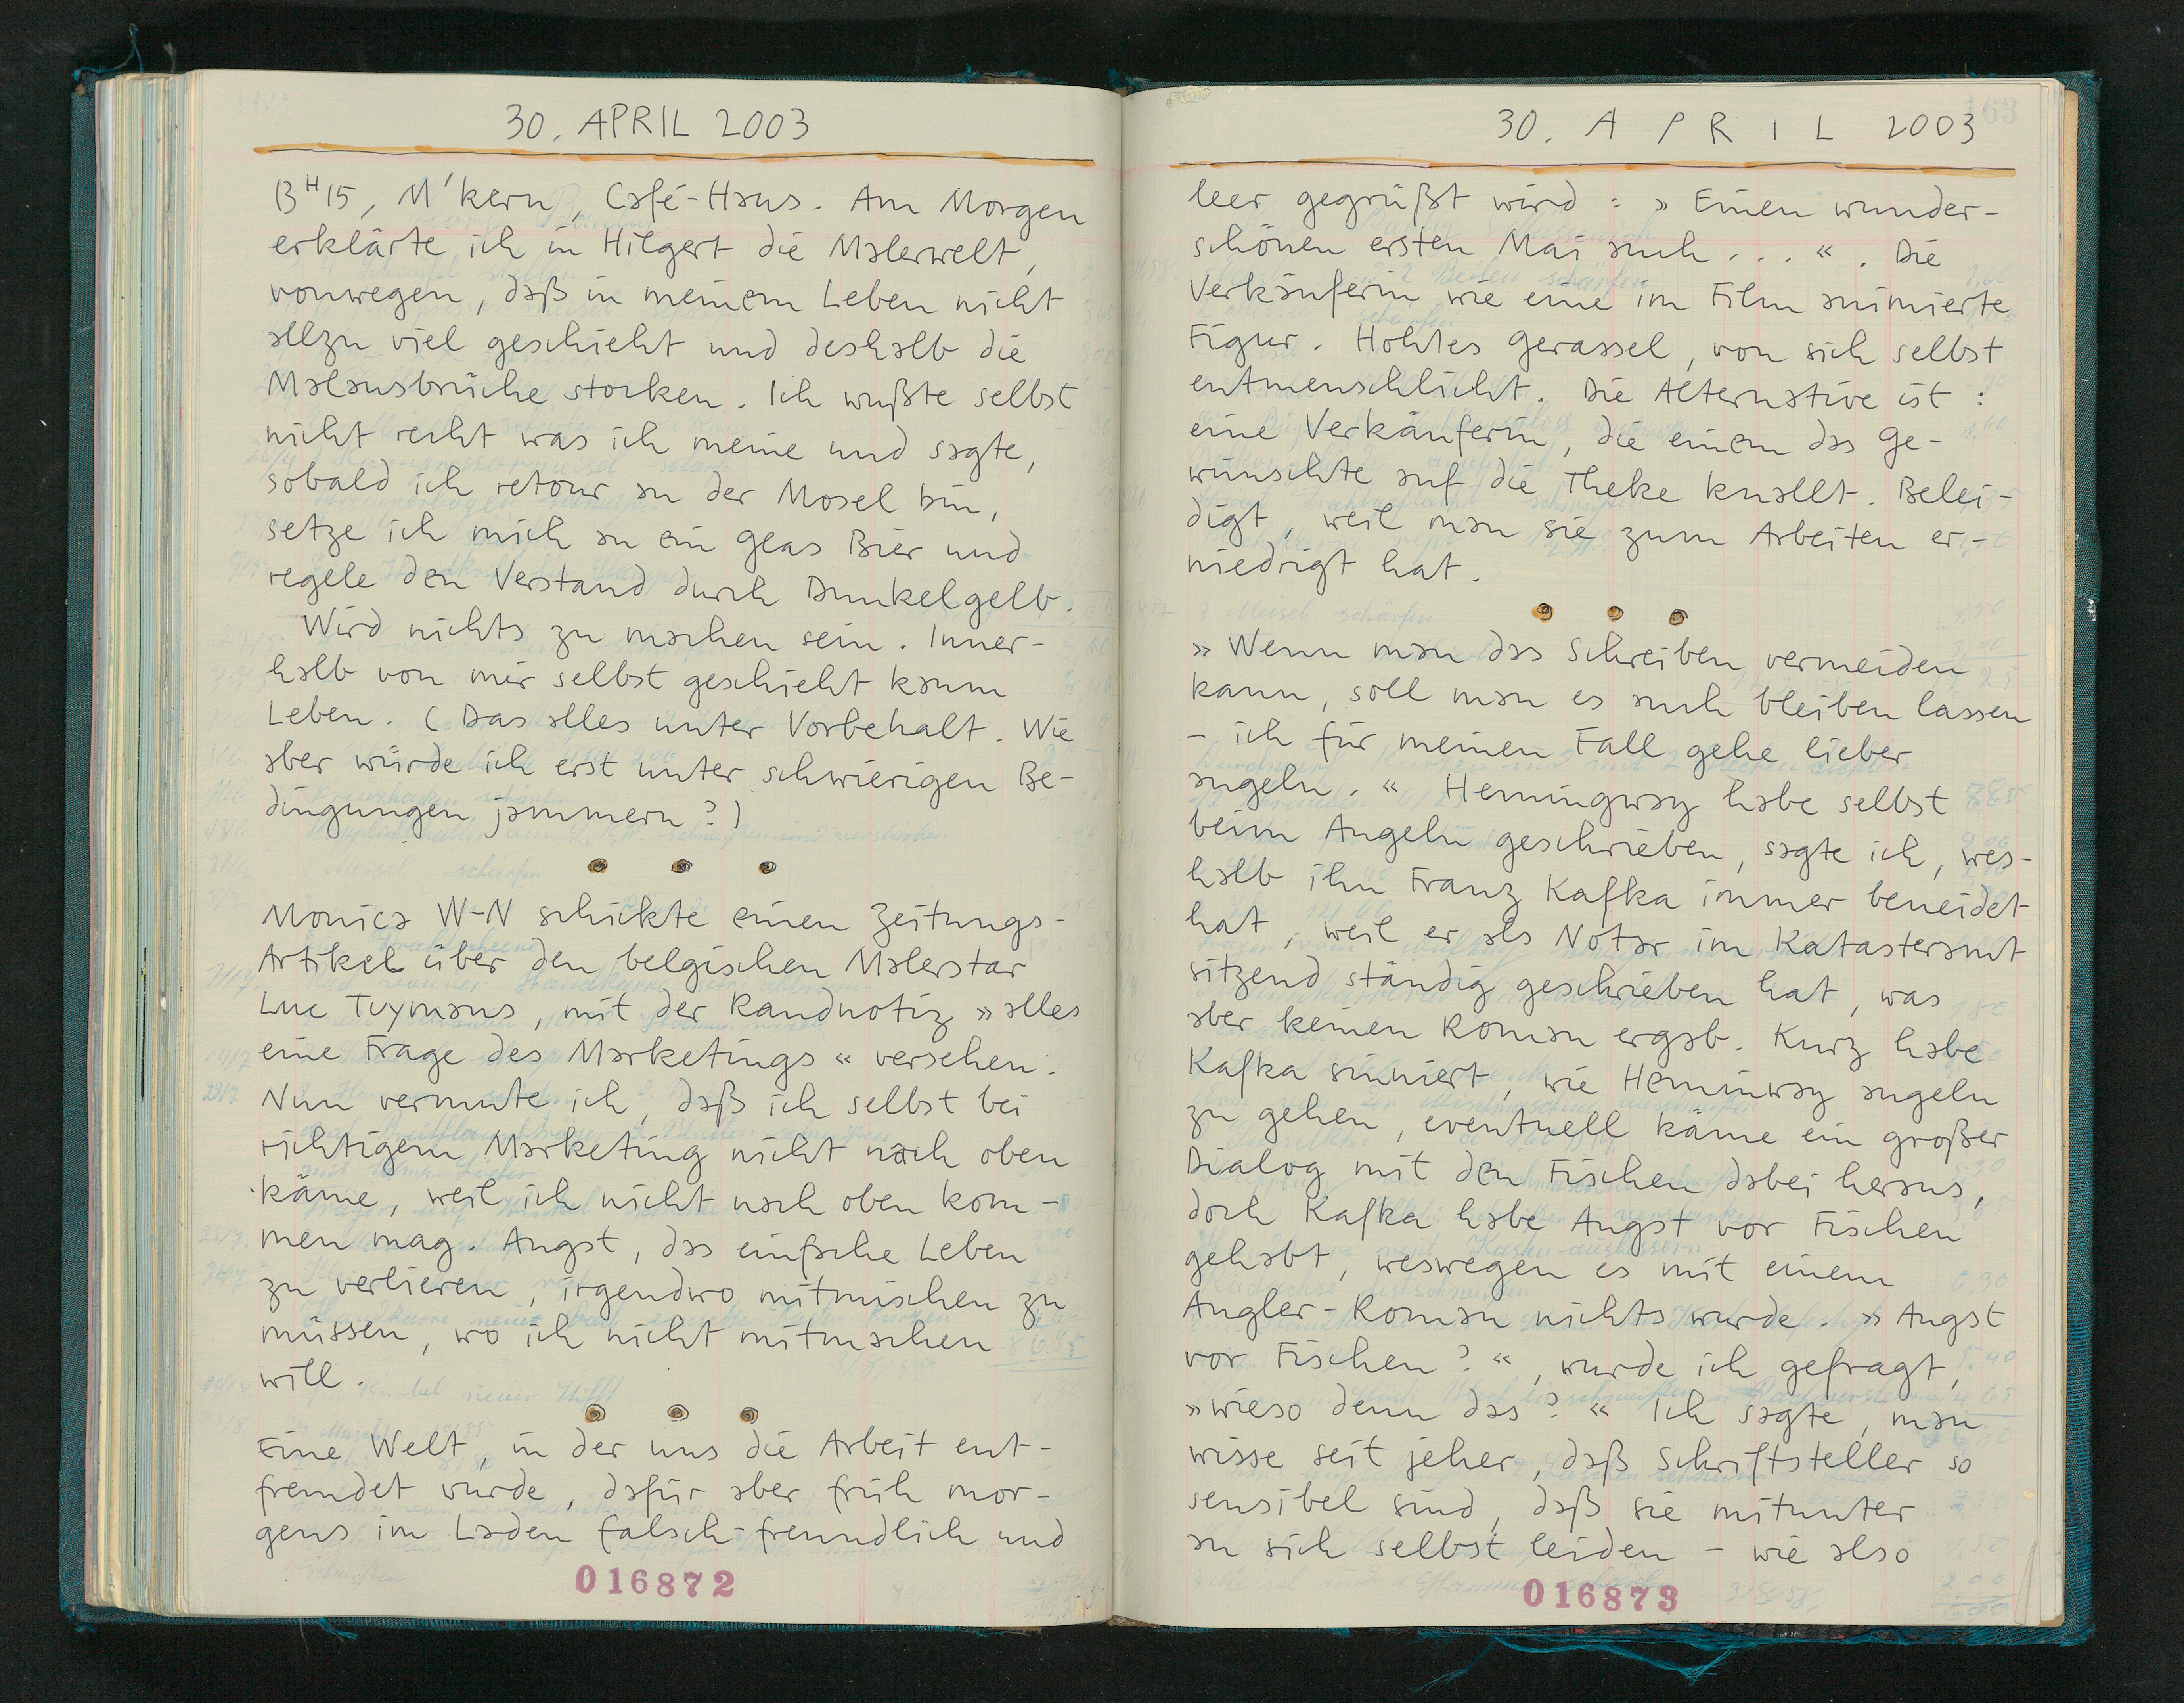 30. APRIL 2003
13ᴴ15, M'kern, Café-Haus. Am Morgen
erklärte ich in Hilgert die Malerwelt,
vonwegen, daß in meinem Leben nicht
allzu viel geschieht und deshalb die
Malausbrüche stocken. Ich wußte selbst
nicht recht was ich meine und sagte,
sobald ich retour an der Mosel bin,
setze ich mich an ein Glas Bier und
regele den Verstand durch Dunkelgelb.
Wird nichts zu machen sein. Inner-
halb von mir selbst geschieht kaum
Leben. (Das alles unter Vorbehalt. Wie
aber würde ich erst unter schwierigen Be-
dingungen jammern?)
Monica W-N schickte einen Zeitungs-
Artikel über den belgischen Malerstar
Luc Tuymans, mit der Randnotiz »alles
eine Frage des Marketings« versehen.
Nun vermute ich, daß ich selbst bei
richtigem Marketing nicht nach oben
käme, weil ich nicht nach oben kom-
men mag. Angst, das einfache Leben
zu verlieren, irgendwo mitmischen zu
müssen, wo ich nicht mitmachen
will.
Eine Welt, in der uns die Arbeit ent-
fremdet wurde, dafür aber früh mor-
gens im Laden falsch-freundlich und
016872
30. APRIL 2003
163
leer gegrüßt wird: »Einen wunder-
schönen ersten Mai auch...«. Die
Verkäuferin wie eine im Film animierte
Figur. Hohles Gerassel, von sich selbst
entmenschlicht. Die Alternative ist:
eine Verkäuferin, die einem das Ge-
wünschte auf die Theke knallt. Belei-
digt, weil man sie zum Arbeiten er-
niedrigt hat.
»Wenn man das Schreiben vermeiden
kann, soll man es auch bleiben lassen
– ich für meinen Fall gehe lieber
angeln.« Hemingway habe selbst
beim Angeln geschrieben, sagte ich, wes-
halb ihn Franz Kafka immer beneidet
hat, weil er als Notar im Katasteramt
sitzend ständig geschrieben hat, was
aber keinen Roman ergab. Kurz habe
Kafka sinniert, wie Heminway angeln
zu gehen, eventuell käme ein großer
Dialog mit den Fischen dabei heraus,
doch Kafka habe Angst vor Fischen
gehabt, weswegen es mit einem
Angler-Roman nichts wurde. »Angst
vor Fischen?«, wurde ich gefragt,
»wieso denn das?« Ich sagte, man
wisse seit jeher, daß Schriftsteller so
sensibel sind, daß sie mitunter
an sich selbst leiden – wie also
016873